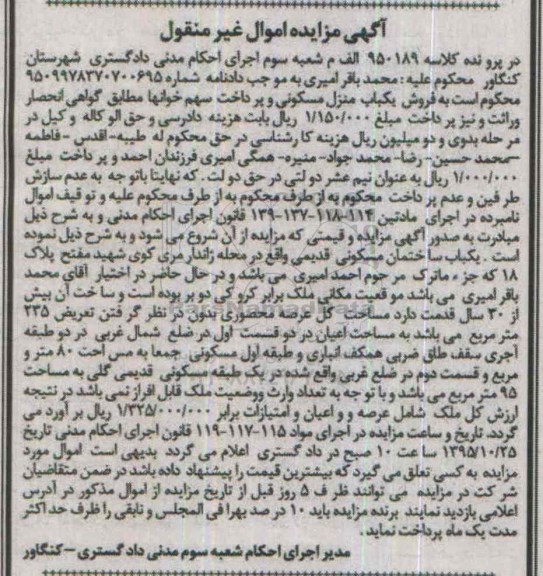 آگهی مزایده اموال غیر منقول
در پرو نده کلاسه ۹۵۰۱۸۹ الف م شعبه سوم اجرای احکام مدنی دادگستری شهرستان
کنگاور محکوم علیه : محمد باقر امیری به مو جب دادنامه شماره ۹۵۰۹۹۷۸۳۷۰۷۰۰۶۹۵
محکوم است به فروش یکباب منزل مسکونی و پر داخت سهم خوانها مطابق گواهی انحصار
وراثت و نیز پر داخت مبلغ ۱/۱۵۰/۰۰۰ ریال بابت هزینه دادرسی و حق الو کاله و کیل در
مر حله بدوی و دو میلیون ریال هزینه کا رشناسی در حق محکوم له طیبه- اقدس - فاطمه
-محمد حسین- رضا- محمد جواد- منیره- همگی امیری فرزندان احمد و پر داخت مبلغ
۱/۰۰۰/۰۰۰ ریال به عنوان نیم عشر دو لتی در حق دو لت . که نهایتا باتو جه به عدم سازش
طر فین و عدم پر داخت محکوم به از طرف محکوم به از طرف محکوم علیه و تو قیف اموال
نامبرده در اجرای مادتین ۱۱۴-۱۱۸-۱۳۷-۱۳۹ قانون اجرای احکام مدنی و به شرح ذیل
مبادرت به صدور آگهی مزایده و قیمتی که مزایده از آن شروع می شود و به شرح ذیل نموده
است . یکباب سا ختمان مسکونی قدیمی واقع در محله ژاندار مری کوی شهید مفتح پلاک
۱۸ که جز ء ماترک مر حوم احمد امیری می باشد و در حال حاضر در اختیار آقای محمد
باقر امیری می باشد مو قعیت مکانی ملک برابر کرو کی دو بر بوده است و سا خت آن بیش
از ۳۰ سال قدمت دارد مساحت کل عرصه محضوری بدون در نظر گر فتن تعریض ۲۳۵
متر مربع می باشد به مساحت اعیان در دو قسمت اول در ضلع شمال غربی در دو طبقه
آجری سقف طاق ضربی همکف انباری و طبقه اول مسکونی جمعا به مس احت ۸۰ متر و
مربع و قسمت دوم در ضلع غربی واقع شده در یک طبقه مسکونی قدیمی گلی به مساحت
۹۵ متر مربع می باشد و با تو جه به تعداد وارث ووضعیت ملک قابل افراز نمی باشد در نتیجه
ارزش کل ملک شامل عرصه و و اعیان و امتیازات برابر ۱/۳۲۵/۰۰۰/۰۰۰ ریال بر آورد می
گردد. تاریخ و ساعت مزایده در اجرای مواد ۱۱۵-۱۱۷-۱۱۹ قانون اجرای احکام مدنی تاریخ
۱۳۹۵/۱۰/۲۵ سا عت ۱۰ صبح در داد گستری اعلام می گردد بدیهی است اموال مورد
مزایده به کسی تعلق می گیرد که بیشترین قیمت را پیشنهاد داده باشد در ضمن متقاضیان
شر کت در مزایده می توانند ظر ف ۵ روز قبل از تاریخ مزایده از اموال مذکور در آدرس
اعلامی بازدید نمایند برنده مزایده باید ۱۰ در صد بهرا فی المجلس و نابقی را ظرف حد اکثر
مدت یک ماه پرداخت نماید .
مدیر اجرای احکام شعبه سوم مدنی داد گستری - کنگاور